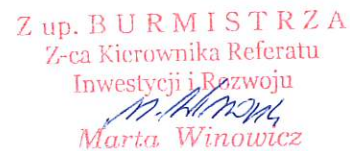 Z up. BURMISTRZA
Z-ca Kierownika Referatu
Inwestycji i Rozwoju
Marta Winowicz